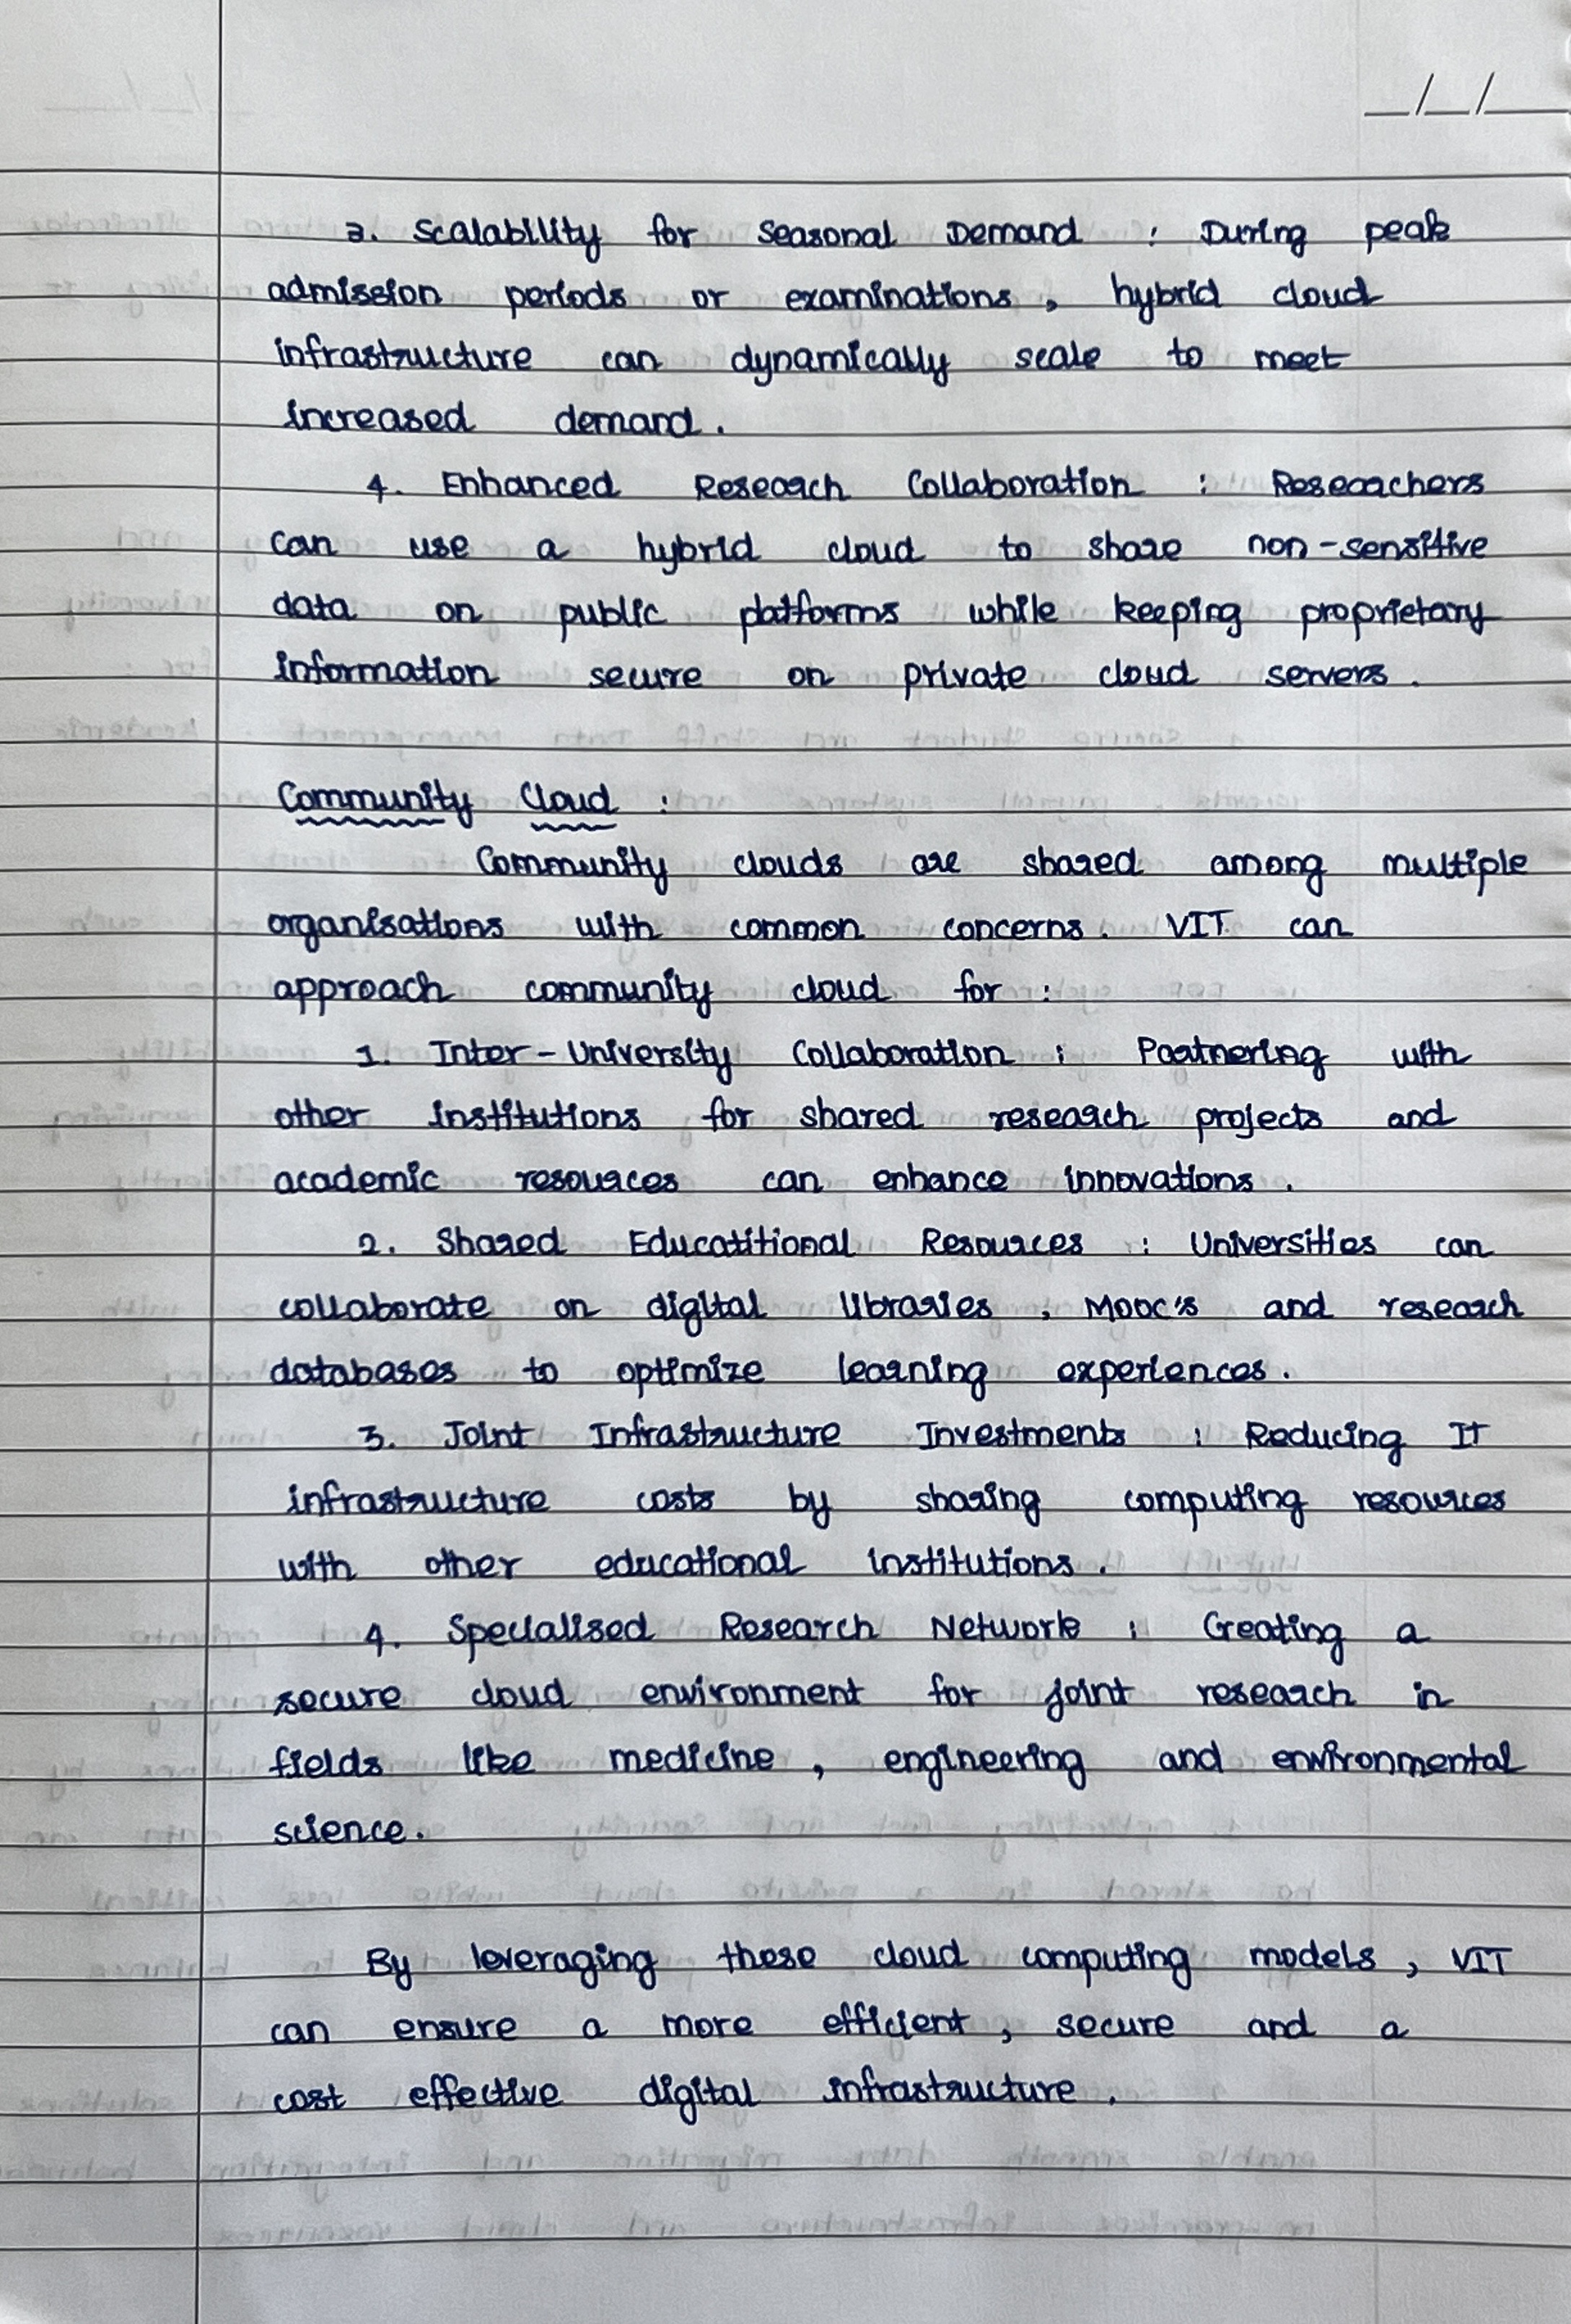 __/__/____
3. Scalability for Seasonal Demand : During peak
admission periods or examinations, hybrid cloud
infrastructure can dynamically scale to meet
increased demand.
4. Enhanced Research Collaboration : Researchers
can use a hybrid cloud to share non-sensitive
data on public platforms while keeping proprietary
information secure on private cloud servers.
Community Cloud :
Community clouds are shared among multiple
organisations with common concerns. VIT can
approach community cloud for :
1. Inter-University Collaboration : Partnering with
other institutions for shared research projects and
academic resources can enhance innovations.
2. Shared Educatitional Resources : Universities can
collaborate on digital libraries, MOOC's and research
databases to optimize learning experiences.
3. Joint Infrastructure Investments : Reducing IT
infrastructure costs by sharing computing resources
with other educational institutions.
4. Specialised Research Network : Creating a
secure cloud environment for joint research in
fields like medicine, engineering and environmental
science.
By leveraging these cloud computing models, VIT
can ensure a more efficient, secure and a
cost effective digital infrastructure.